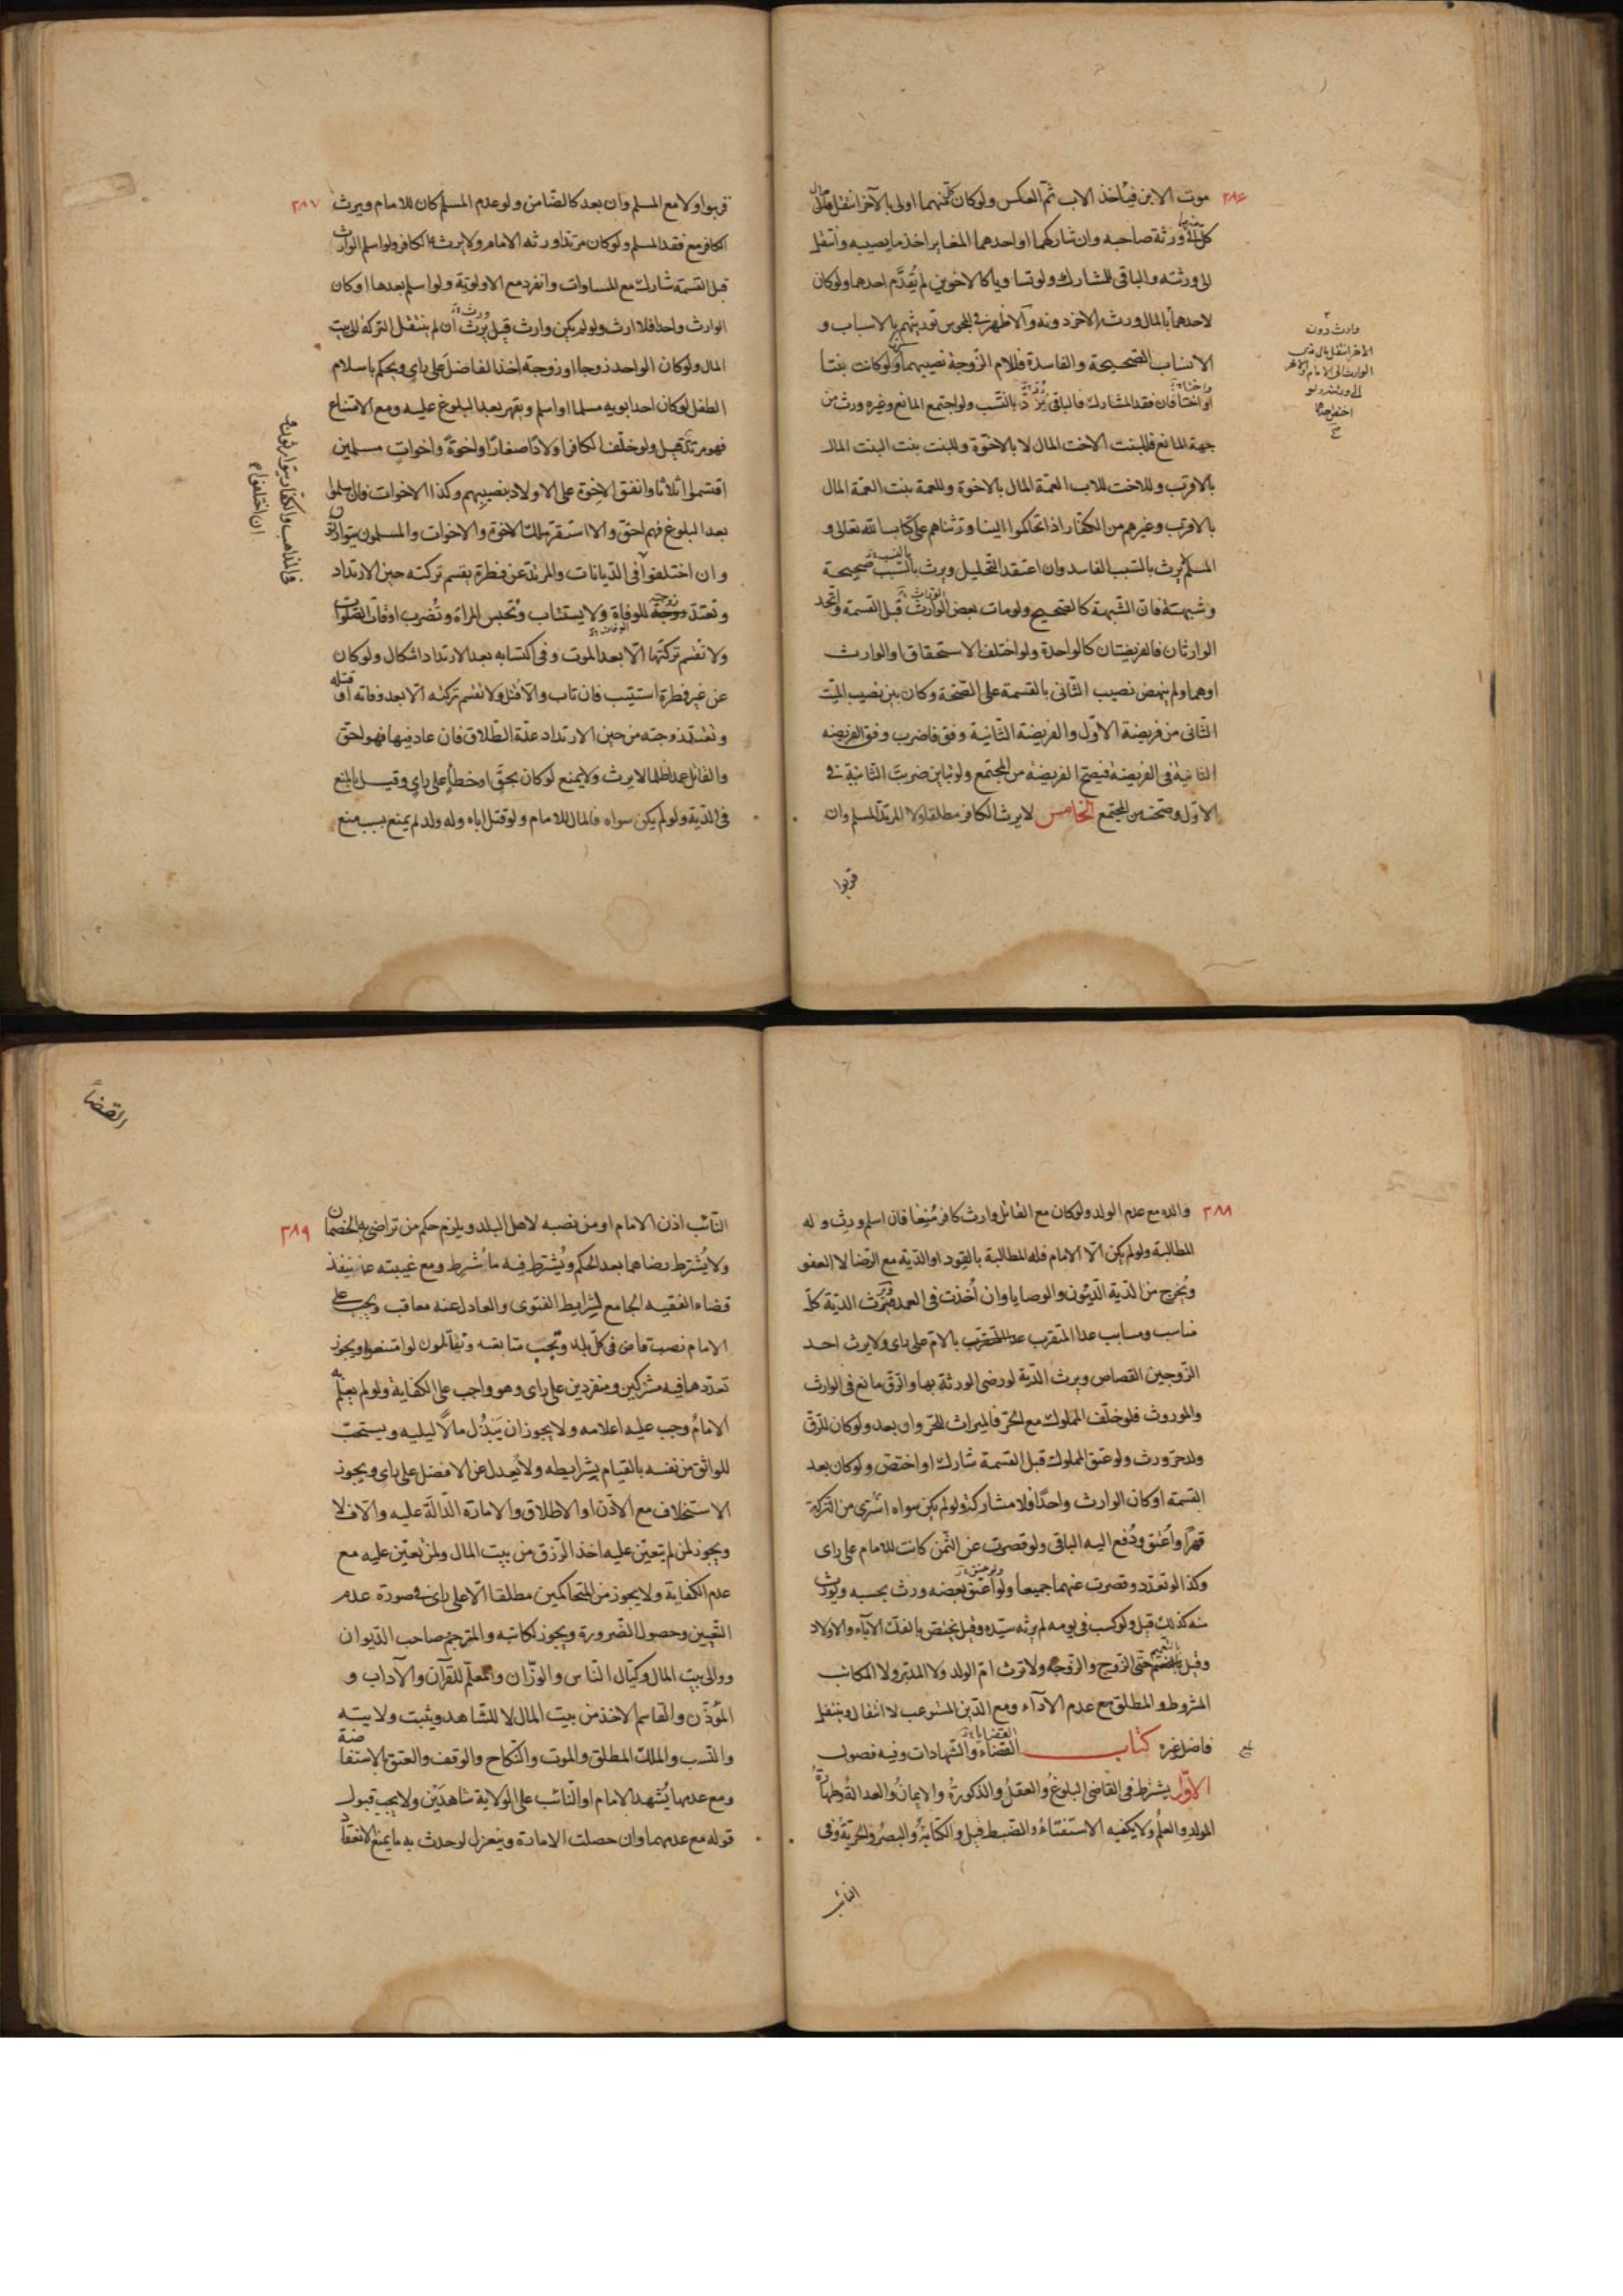 ٢٨٦
موت الابن فيأخذ الاب ثم العكس ولوكان كل منهما اولى بالآخر انتقل مال
كل الى ورثة صاحبه وان شاركهما او احدهما المغاير اخذ ما يصيبه وانتقل
الى ورثته والباقى للمشارك ولو تساويا كالاخوين لم يُقدَّم احدهما ولوكان
لاحدهما مال ورثه الاخر دونه والاظهر فى المجوس توريثهم بالاسباب و
الانساب الصحيحة والفاسدة فللام الزوجة نصيبهما ولوكانت بنتا
او اختا فان فقد المشارك فالباقى يُرَدّ بالنسب ولو اجتمع المانع وغيره ورث من
جهة المانع فللبنت الاخت المال لا بالاخوة وللبنت بنت البنت المال
بالاقرب وللاخت للاب العمة المال بالاخوة وللعمة بنت العمة المال
بالاقرب وغيرهم من الكفار اذا تحاكموا الينا ورثناهم على كتاب الله تعالى و
المسلم لا يرث بالسبب الفاسد وان اعتقد التحليل ويرث بالنسب صحيحة
وشبهته فان الشبهة كالصحيح ولو مات بعض الوارث قبل القسمة واتحد
الوارثان فالفريضتان كالواحدة ولو اختلف الاستحقاق او الوارث
اوهما ولم ينهض نصيب الثانى بالقسمة على الصحة وكان بين نصيب الميت
الثانى من فريضة الاوّل والفريضة الثانية وفق فاضرب وفق الفريضه
الثانية فى الفريضة فيصح الفريضه من المجتمع ولو تباين ضربت الثانية فى
الاوّل وصحت من المجتمع الخامس لا يرث الكافر مطلقا ولا المرتد المسلم وان
قربوا
وارث دون
الاخر انتقل مال ذى
الوارث الى الامام
٢٨٧
قربوا ولا مع المسلم وان بعد كالضامن ولو عدم المسلم كان للامام ويرث
الكافر مع فقد المسلم ولوكان مرتدا ورثه الامام ولا يرثه الكافر ولو اسلم الوارث
قبل القسمة شارك مع المساوات وانفرد مع الاولوية ولو اسلم بعدها اوكان
الوارث واحدا فلا ارث ولو لم يكن وارث قيل يرث ان لم ينتقل التركة الى بيت
المال ولوكان الواحد زوجا او زوجة اخذ الفاضل على راى ويحكم باسلام
الطفل لوكان احد ابويه مسلما او اسلم ويقهر بعد البلوغ عليه ومع الامتناع
فهو مرتد قيل ولو خلّف الكافر اولادًا صغارًا واخوةً واخواتٍ مسلمين
اقتسموا اثلاثا وانفق الاخوة على الاولاد بنصيبهم وكذا الاخوات فان اسلموا
بعد البلوغ فهم احق والا استقر ملك الاخوة والاخوات والمسلمون يتوارثون
وان اختلفوا فى الديانات والمرتد عن فطرة يقسم تركته حين الارتداد
وتعتدّ زوجته للوفاة ولا يستتاب وتُحبس المراة وتُضرب اوقات الصلوات
ولا تقسم تركتها الا بعد الموت وفى اكتسابه بعد الارتداد اشكال ولوكان
عن غير فطرة استتيب فان تاب والا قتل ولا تقسم تركته الا بعد وفاته او قتله
وتعتد زوجته من حين الارتداد عدّة الطلاق فان عاد فيها فهو احق
والقاتل عمدا ظلما لا يرث ولا يمنع لوكان بحق او خطأ على راى وقيل بالمنع
فى الدية ولو لم يكن سواه فالمال للامام ولو قتل اباه وله ولد لم يمنع بسبب منع
فى المذاهب والكفار يتوارثون
ان اختلفوا
٢٨٨
والده مع عدم الولد ولوكان مع القاتل وارث كافر مُنِعا فان اسلم ورث وله
المطالبة ولو لم يكن الا الامام فله المطالبة بالقود او الدية مع الرضا لا العفو
ويُخرج من الدية الديون والوصايا وان أُخذت فى العمد ويرث الدية كل
مناسب ومسابب عدا المتقرب بالام على راى ولا يرث احد
الزوجين القصاص ويرث الدية لو رضى الورثة بها والرق مانع فى الوارث
والموروث فلو خلّف المملوك مع الحر فالميراث للحر وان بعد ولوكان للرق
ولد حر ورث ولو عتق المملوك قبل القسمة شارك او اختص ولوكان بعد
القسمة اوكان الوارث واحدًا فلا مشاركة ولو لم يكن سواه اشترى من التركة
قهرًا وأُعتق ودُفع اليه الباقى ولو قصرت عن الثمن كانت للامام على راى
وكذا لو تعدّد وقصرت عنهما جميعا ولو اعتق بعضه ورث بحسبه ويورث
منه كذلك قيل ولو كسب فى يومه لم يرثه سيده وقيل يختص بالفك الآباء والاولاد
وقيل بالتعميم حتى الزوج والزوجة ولا ترث ام الولد ولا المدبر ولا المكاتب
المشروط والمطلق مع عدم الآداء ومع الدين المستوعب لا انتقال وينتقل
فاضل غيره كتاب القضاء والشهادات وفيه فصول
الاوّل يشترط فى القاضى البلوغُ والعقلُ والذكورةُ والايمانُ والعدالةُ وطهارةُ
المولدِ والعلمُ ولا يكفيه الاستفتاءُ والضبط قيل والكتابةُ والبصرُ والحريّةُ وفى
النائب
القضاء
٢٨٩
النائب اذن الامام او من نصبه لاهل البلد ويلزم حكم من تراضى به الخصمان
ولا يُشترط رضاهما بعد الحكم ويُشترط فيه ما شُرط ومع غيبته ينفذ
قضاء الفقيه الجامع لشرايط الفتوى والعادل عنه معاقب ويجب على
الامام نصب قاض فى كل بلد وتجب متابعته ويقاتلون لو امتنعوا ويجوز
تعدّدها فيه مشتركين ومنفردين على راى وهو واجب على الكفاية ولو لم يعلم به
الامامُ وجب عليه اعلامه ولا يجوز ان يَبْذُل مالًا ليليه ويستحبّ
للواثق من نفسه بالقيام بشرايطه ولا يعدل عن الافضل على راى ويجوز
الاستخلاف مع الاذن او الاطلاق والامارة الدالّة عليه والا فلا
ويجوز لمن لم يتعين عليه اخذ الرزق من بيت المال ولمن تعين عليه مع
عدم الكفاية ولا يجوز من المتحاكمين مطلقا الا على راى فى صورة عدم
التعيين وحصول الضرورة ويجوز لكاتبه والمترجم صاحب الديوان
ووالى بيت المال وكيّال الناس والوزّان والمعلّم للقرآن والآداب و
المؤذّن والقاسم الاخذ من بيت المال لا للشاهد ويثبت ولايته
والنسب والملك المطلق والموت والنكاح والوقف والعتق بالاستفاضة
ومع عدمها يُشهد الامام او النائب على الولاية شاهدَين ولا يجب قبول
قوله مع عدمهما وان حصلت الامارة وينعزل لو حدث به ما يمنع الانعقاد